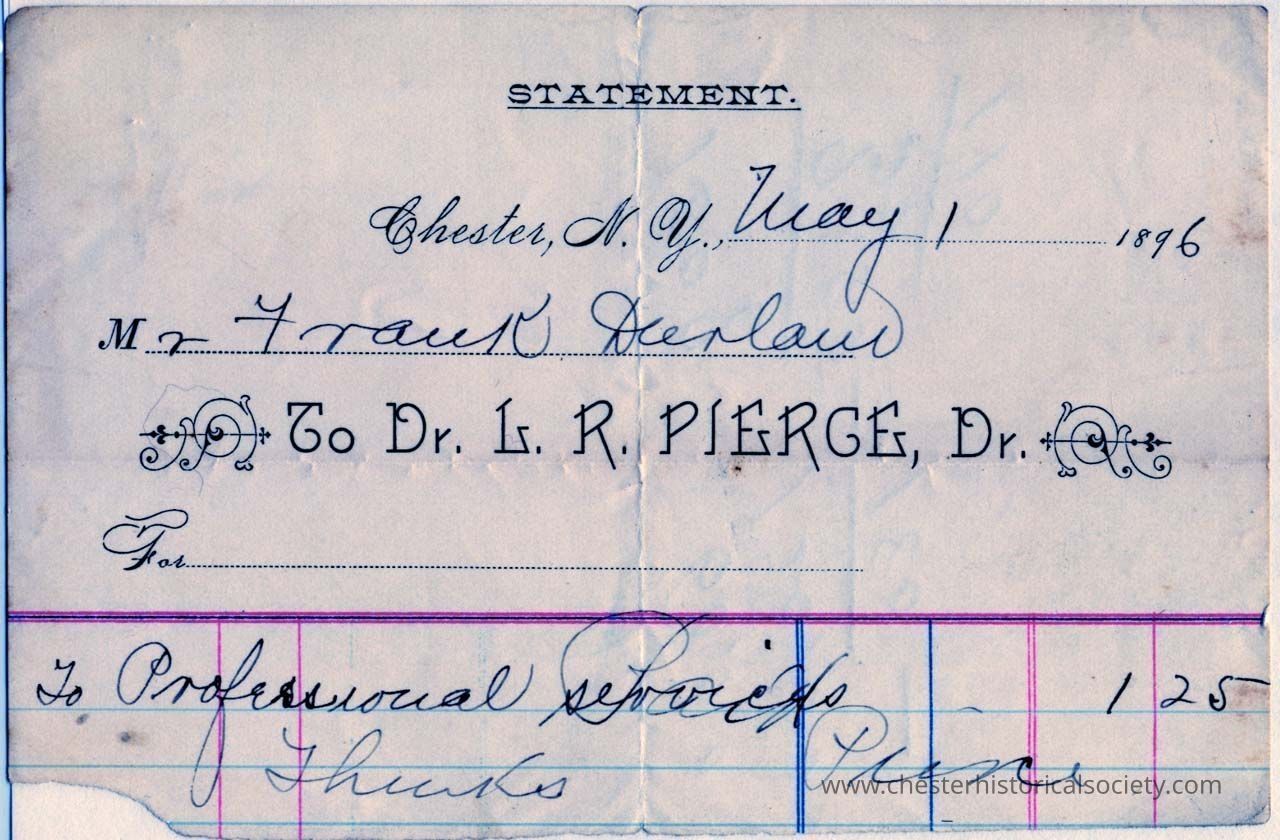 STATEMENT.
Chester, N. Y., May 1 1896
Mr Frank Durland
To Dr. L. R. PIERCE, Dr.
For
To Professional services 1 25
Paid
Thanks Pierce
www.chesterhistoricalsociety.com